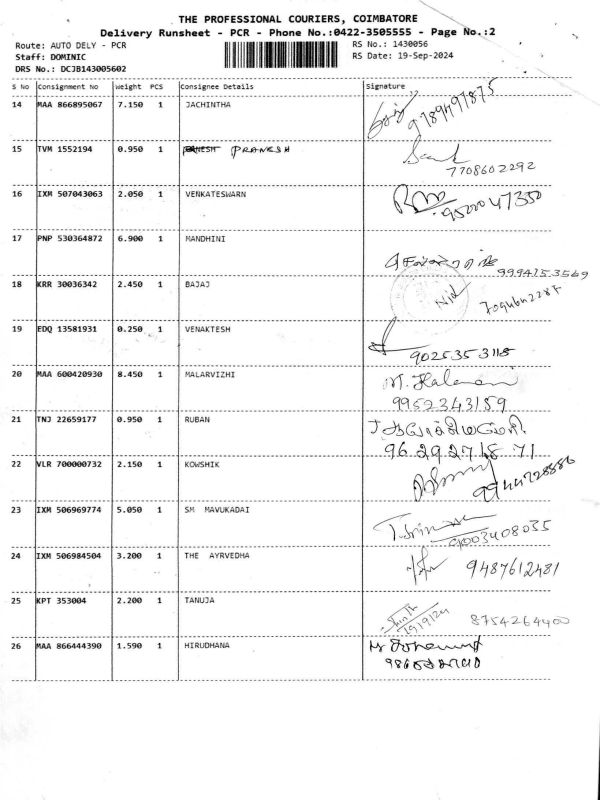 THE PROFESSIONAL COURIERS, COIMBATORE
Delivery Runsheet - PCR - Phone No.:0422-3505555 - Page No.:2
Route: AUTO DELY - PCR RS No.: 1430056
Staff: DOMINIC RS Date: 19-Sep-2024
DRS No.: DCJB143005602
S No Consignment No Weight PCS Consignee Details Signature
14 MAA 866895067 7.150 1 JACHINTHA
9789497875
15 TVM 1552194 0.950 1 PRANESH
7708602292
16 IXM 507043063 2.050 1 VENKATESWARN
9500047350
17 PNP 530364872 6.900 1 MANDHINI
9994153569
18 KRR 30036342 2.450 1 BAJAJ
19 EDQ 13581931 0.250 1 VENAKTESH
9025353118
20 MAA 600420930 8.450 1 MALARVIZHI
9952343159
21 TNJ 22659177 0.950 1 RUBAN
96 29 27 18 71
22 VLR 700000732 2.150 1 KOWSHIK
9944728886
23 IXM 506969774 5.050 1 SM MAVUKADAI
9003408035
24 IXM 506984504 3.200 1 THE AYRVEDHA
9487612481
25 KPT 353004 2.200 1 TANUJA
19/9/24 8754264400
26 MAA 866444390 1.590 1 HIRUDHANA